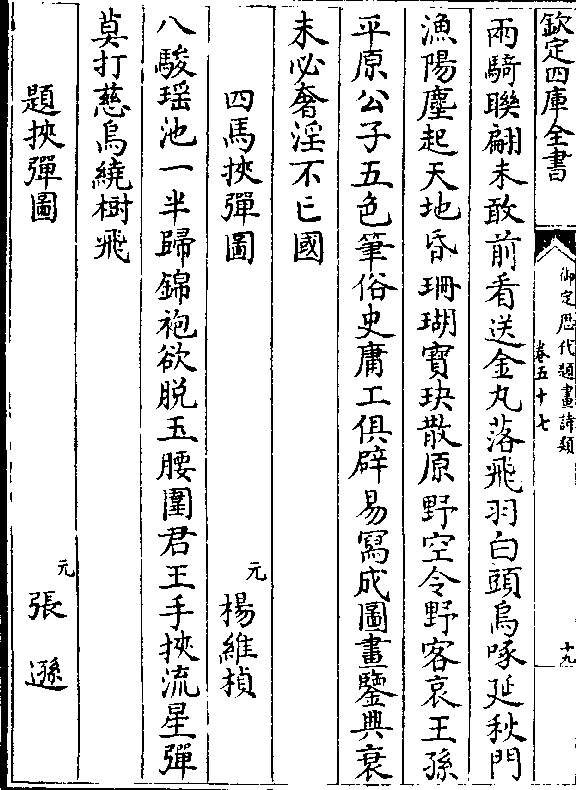 欽定四庫全書
御定歴代題畫詩類
卷五十七
十九
兩騎聯翩未敢前看送金丸落飛羽白頭烏啄延秋門
漁陽塵起天地昏珊瑚寶玦散原野空令野客哀王孫
平原公子五色筆俗史庸工俱辟易寫成圖畫鑒興衰
未必奢淫不亡國
四馬挾彈圖
元
楊維楨
八駿瑶池一半歸錦袍欲脱玉腰圍君王手挾流星彈
莫打慈烏繞樹飛
題挾彈圖
元
張遜